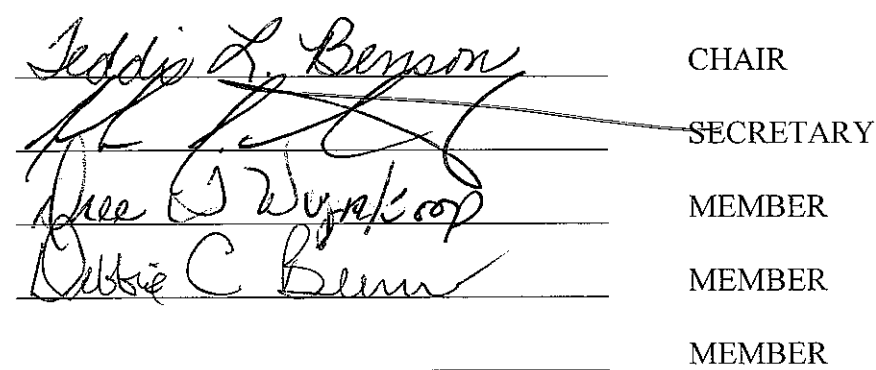 Teddie L. Benson CHAIR
SECRETARY
Wynkoop MEMBER
Debbie C MEMBER
MEMBER